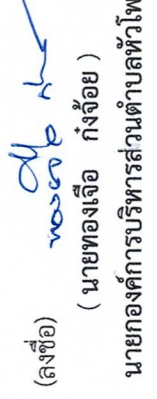 (ลงชื่อ)
( นายทองเจือ กิ่งจ้อย )
นายกองค์การบริหารส่วนตำบลหัวโพ